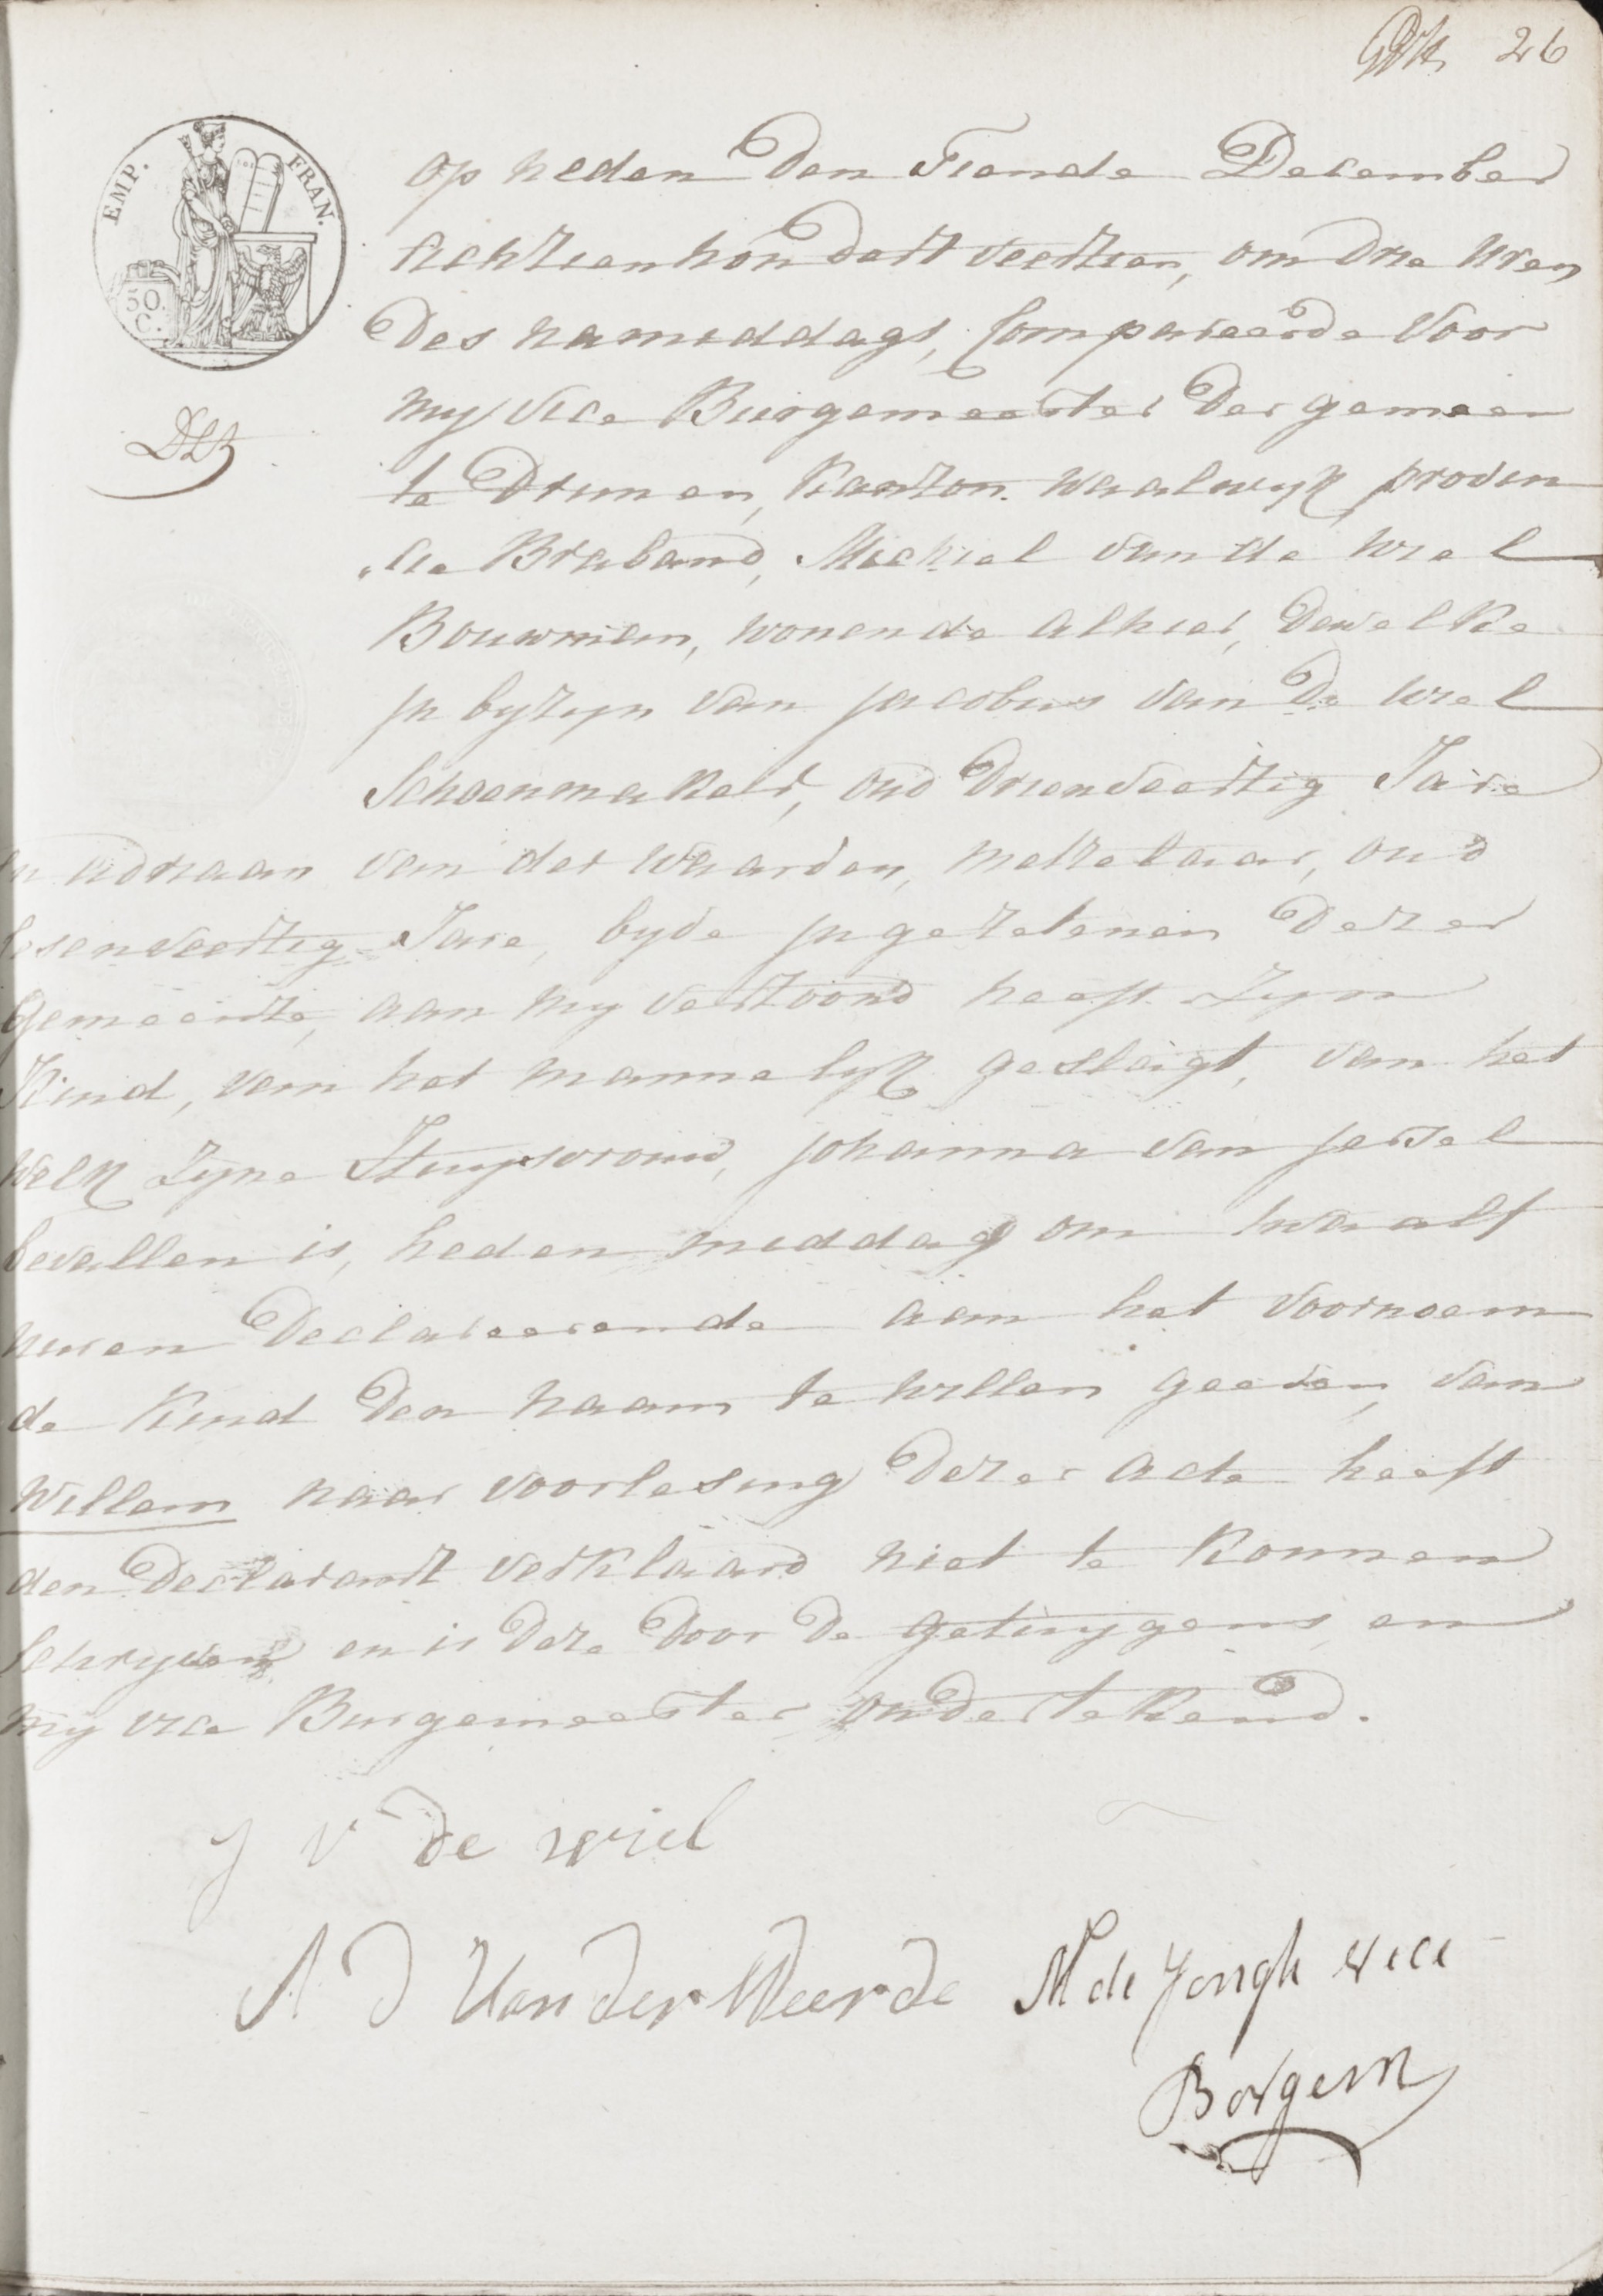 26
EMP. FRAN.
50.
C.
op heden Den Tiende December
Achtienhondert veertien, om drie uren
Des namiddags, Compareerde voor
my vice Burgemeester Der gemeen
te Drunen, Kanton Waalwyk, provin
cie Braband, Michiel van de Wiel
Bouwman, wonende alhier, Dewelke
jn byzyn van jacobus van De Wiel
Schoenmaker, oud Drienveertig Jare
en adriaan van der Waarden, metzelaar, oud
sesenveertig Jare, byde jngezetenen Dezer
Gemeente, aan my vertoond heeft Zyn
Kind, van het mannelyk geslaigt, van het
welk Zyne Huysvrouw, johanna van jersel
bevallen is, heden middag om twaalf
huren Declareerende aan het voornoem
de Kind Den naam te willen geeven, van
Willem naar voorlesing Dezer acte heeft
den Declarant verklaard niet te Konnen
schryven en is Deze Door De getuygens, en
my vice Burgemeester ondertekend.
J V de wiel
A D Van der Weerde
M de Jongh vice
Borgem